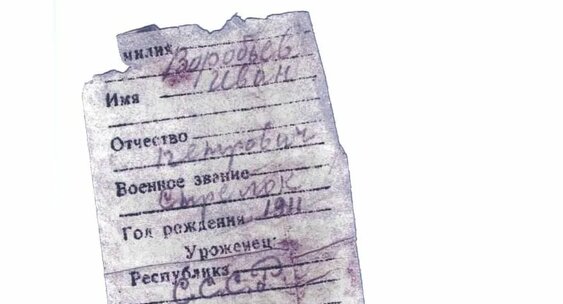 милия Воробьев
Имя Иван
Отчество
Петрович
Военное звание
Стрелок
Год рождения 1911
Уроженец:
Республика
С.С.С.Р.